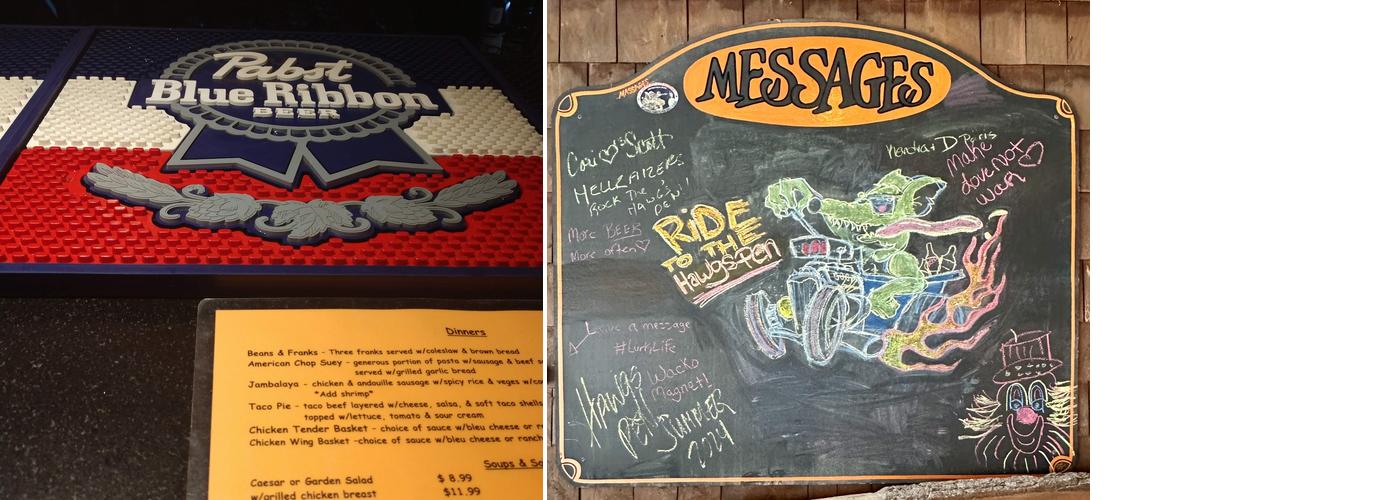 Pabst
Blue Ribbon
BEER
Dinners
Beans & Franks - Three franks served w/coleslaw & brown bread
American Chop Suey - generous portion of pasta w/sausage & beef
served w/grilled garlic bread
Jambalaya - chicken & andouille sausage w/spicy rice & veges
*Add shrimp*
Taco Pie - taco beef layered w/cheese, salsa, & soft taco shells
topped w/lettuce, tomato & sour cream
Chicken Tender Basket - choice of sauce w/bleu cheese or
Chicken Wing Basket -choice of sauce w/bleu cheese or ranch
Soups &
Caesar or Garden Salad $ 8.99
w/grilled chicken breast $11.99
MESSAGES
MASSAGES
Scott
HELLRAIZERS
ROCK THE
HAWG'S
DEN!
More BEER
More often♡
RiDE
TO THE
Hawgs-Pen
D Paris
Make
Love NOT
War
Leave a message
#LurkyLife
Wacko
Magnet!
Hawgs
Pen
SUMMER
2024